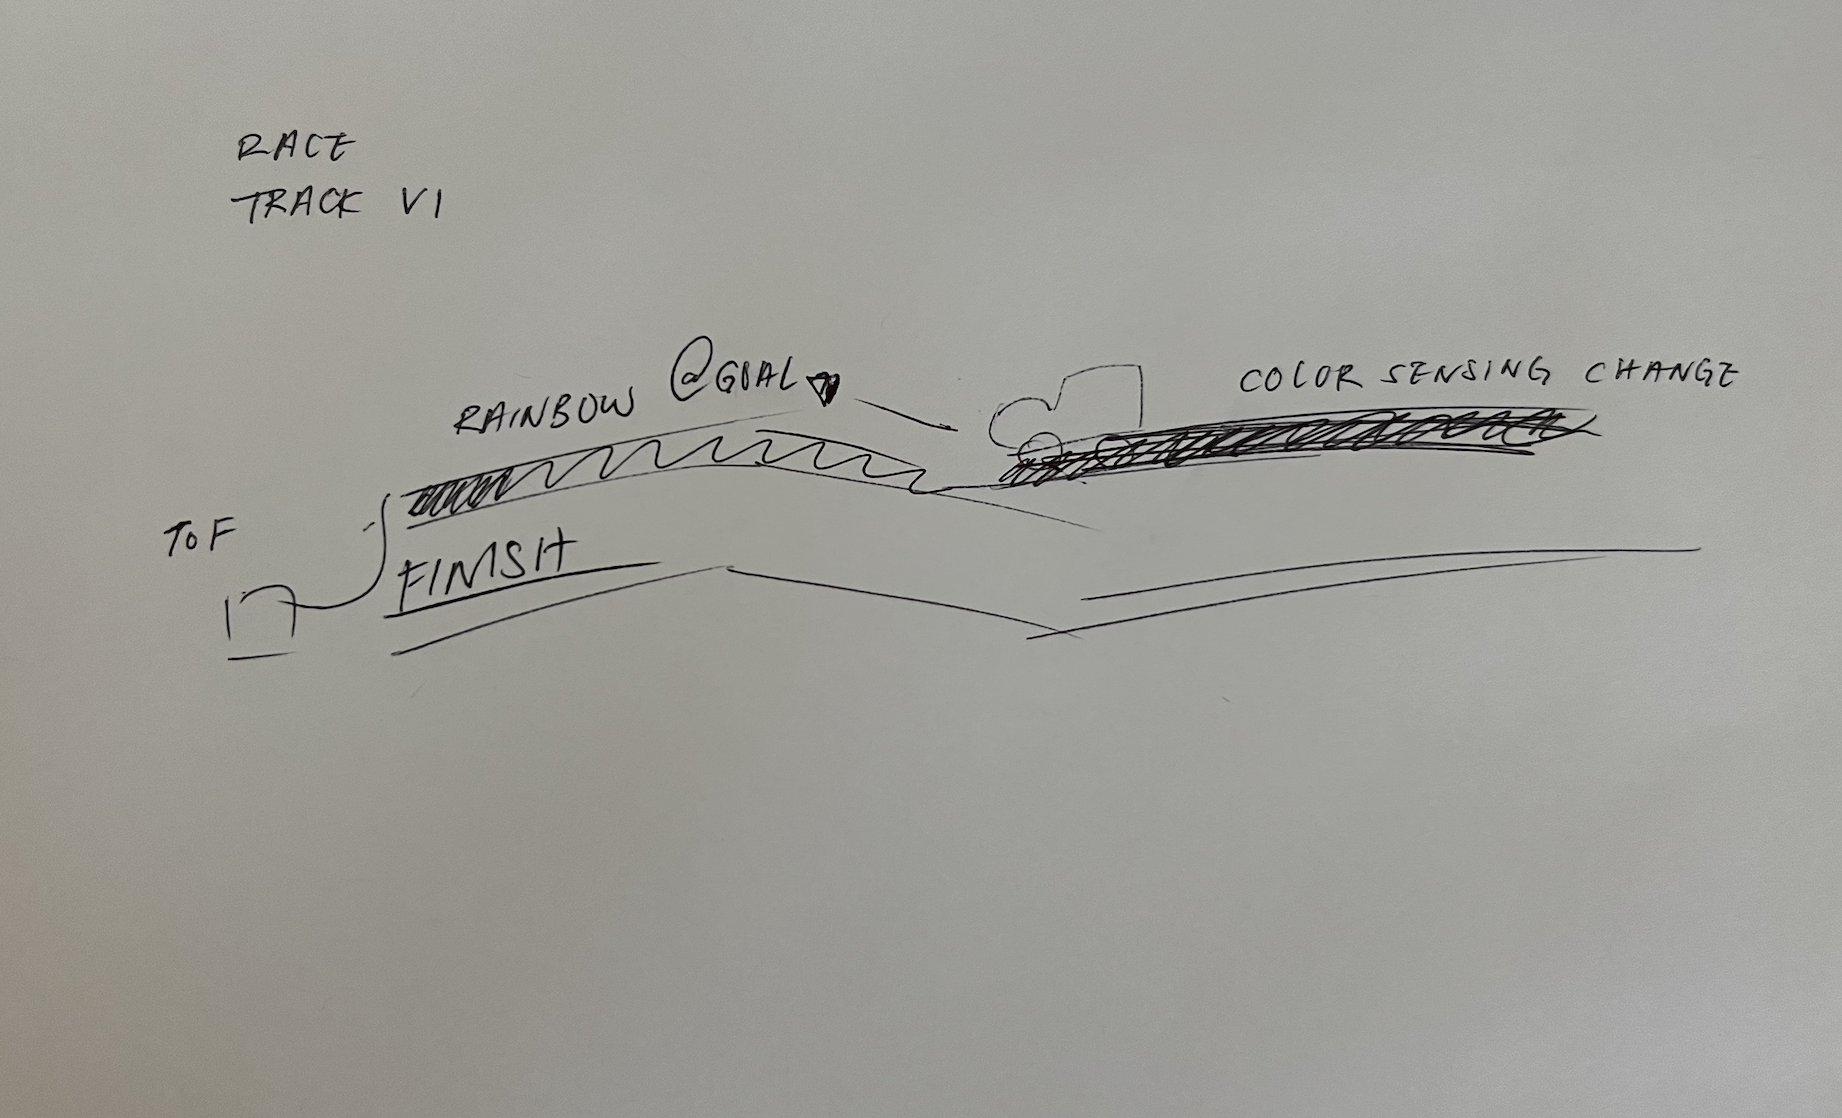 RACE
TRACK V1
RAINBOW @GOAL
COLOR SENSING CHANGE
TOF
FINISH